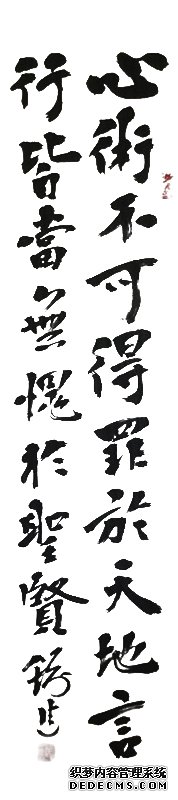 心術不可得罪於天地言
行皆當無愧於聖賢
织梦内容管理系统
DEDECMS.COM